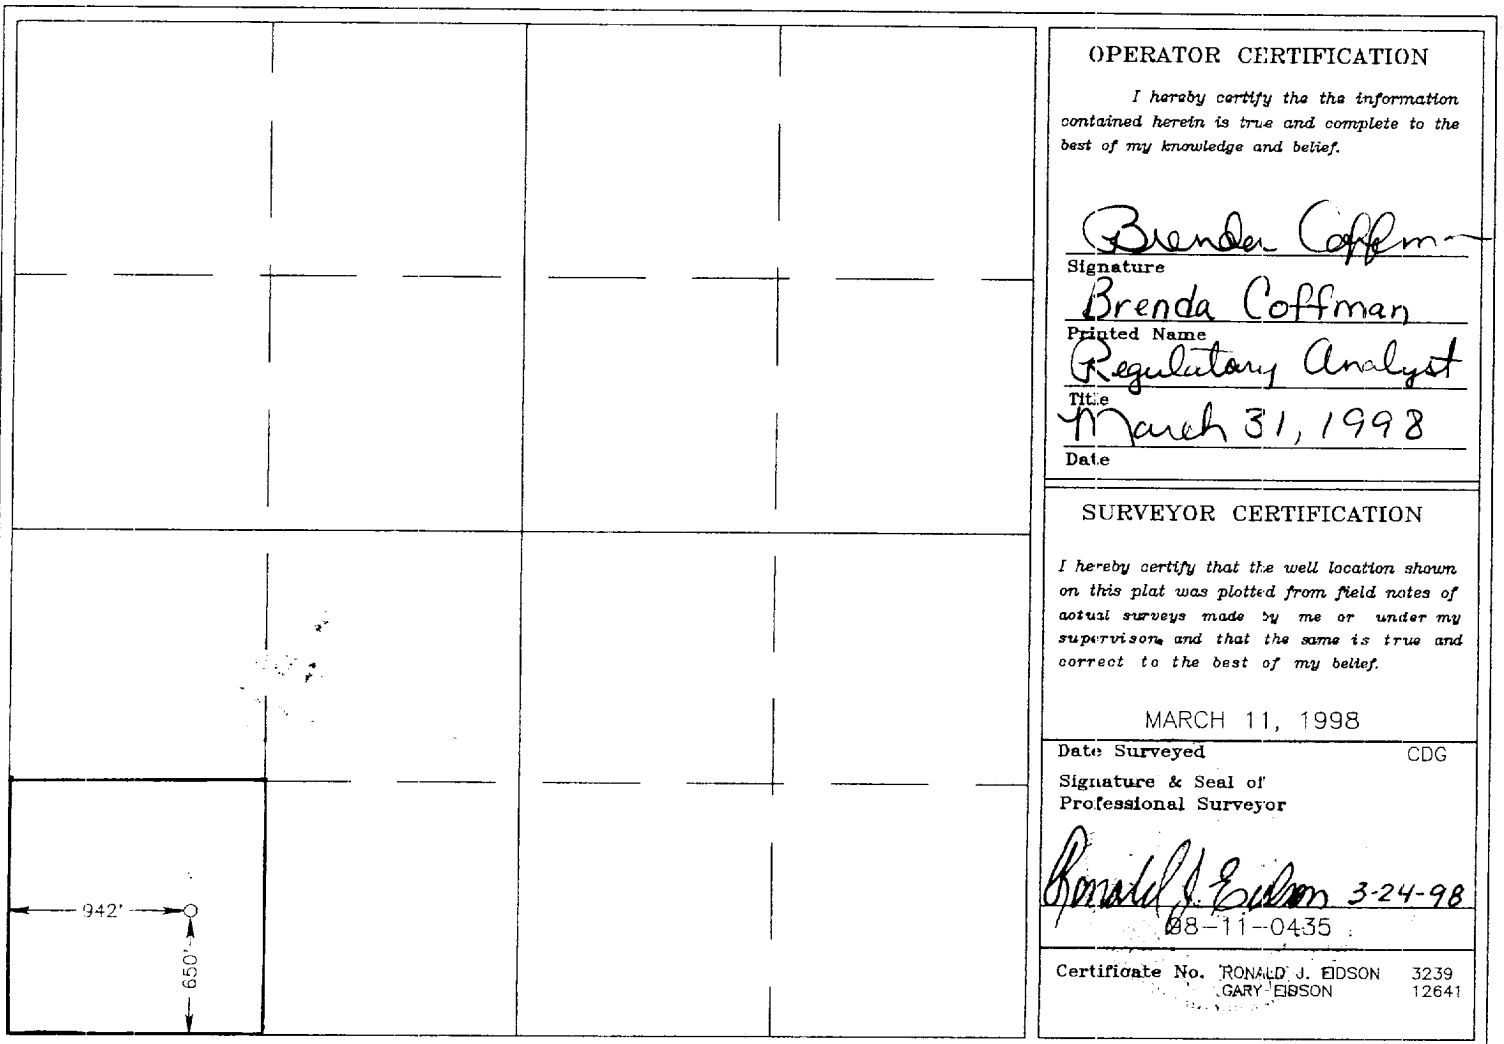 OPERATOR CERTIFICATION
I hereby certify the the information
contained herein is true and complete to the
best of my knowledge and belief.
Brenda Coffman
Signature
Brenda Coffman
Printed Name
Regulatory Analyst
Title
March 31, 1998
Date
SURVEYOR CERTIFICATION
I hereby certify that the well location shown
on this plat was plotted from field notes of
actual surveys made by me or under my
supervison, and that the same is true and
correct to the best of my belief.
MARCH 11, 1998
Date Surveyed CDG
Signature & Seal of
Professional Surveyor
Ronald J. Eidson 3-24-98
98-11-0435
Certificate No. RONALD J. EIDSON 3239
GARY EIDSON 12641
942'
650'